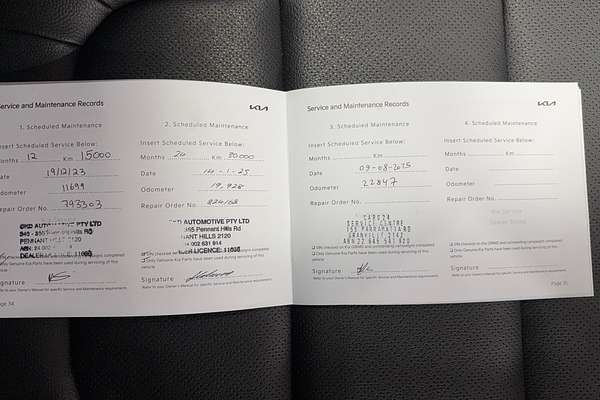 Service and Maintenance Records
KIA
1. Scheduled Maintenance
Insert Scheduled Service Below:
Months 12 Km 15000
Date 19/12/23
Odometer 11699
Repair Order No. 793303
AUTOMOTIVE PTY LTD
Signature
Page 34
2. Scheduled Maintenance
Insert Scheduled Service Below:
Months 24 Km 30000
Date 14-1-25
Odometer 19,928
Repair Order No. 824168
AUTOMOTIVE PTY LTD
Pennant Hills Rd
HILLS 2120
002 631 914
LICENCE:
Only Genuine Kia Parts have been used during servicing of this
vehicle
Signature
Refer to your Owner's Manual for specific Service and Maintenance requirements
Service and Maintenance Records
KIA
3. Scheduled Maintenance
Insert Scheduled Service Below:
Months Km
Date 09-08-2025
Odometer 22847
Repair Order No.
SERVICE CENTRE
GRANVILLE 2142
Only Genuine Kia Parts have been used during servicing of this
vehicle
Signature
Refer to your Owner's Manual for specific Service and Maintenance requirements
4. Scheduled Maintenance
Insert Scheduled Service Below:
Months Km
Date
Odometer
Repair Order No.
Only Genuine Kia Parts have been used during servicing of this
vehicle
Signature
Refer to your Owner's Manual for specific Service and Maintenance requirements
Page 35